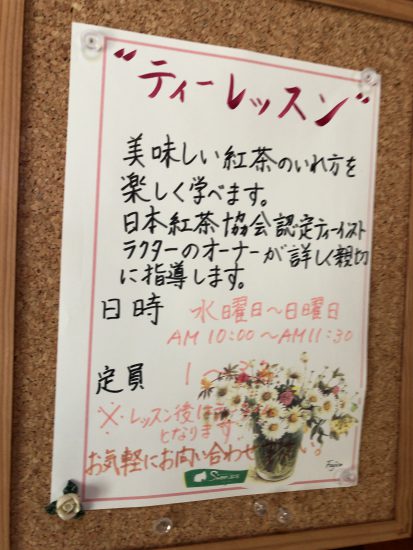 "ティーレッスン"
美味しい紅茶のいれ方を
楽しく学べます。
日本紅茶協会認定ティーインスト
ラクターのオーナーが詳しく親切
に指導します。
日時 水曜日〜日曜日
AM 10:00〜AM 11:30
定員 1〜
※レッスン後は
となります。
お気軽にお問い合わせ